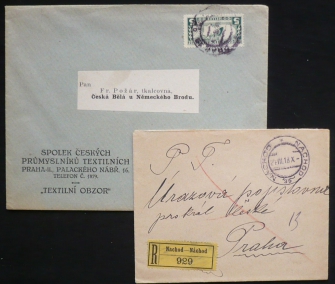 Pan
Fr. Požár, tkalcovna,
Česká Bělá u Německého Brodu.
SPOLEK ČESKÝCH
PRŮMYSLNÍKŮ TEXTILNÍCH
PRAHA-II., PALACKÉHO NÁBŘ. 16.
TELEFON Č. 1979.
"TEXTILNÍ OBZOR"
NACHOD
P. T.
Úrazová pojišťovna
pro král. České
Praha
R
Nachod—Náchod
929